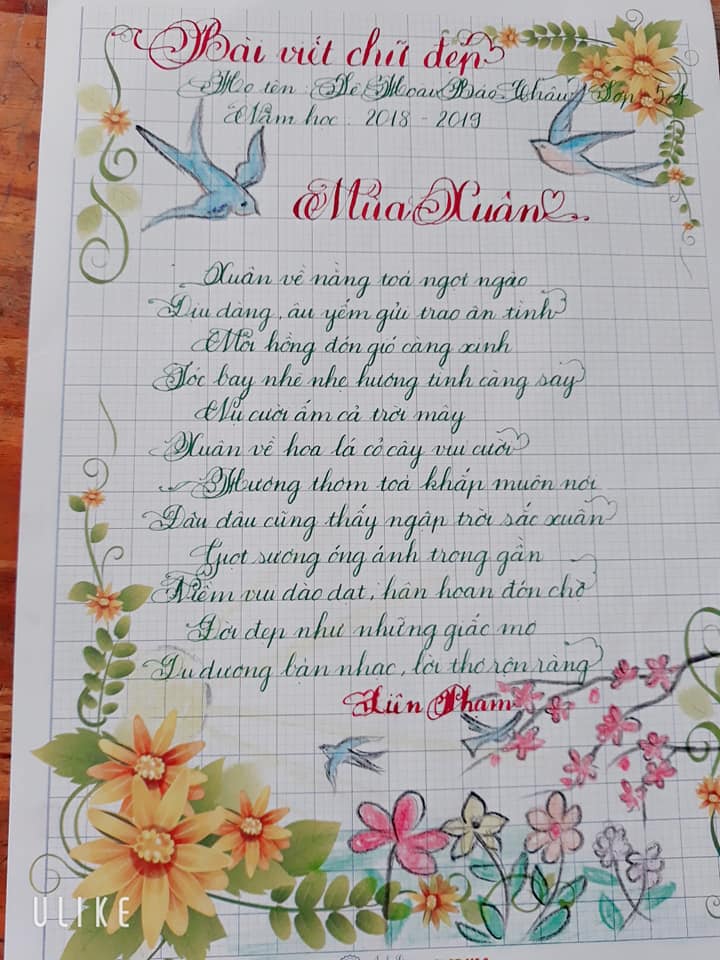 Bài viết chữ đẹp
Họ tên: Lê Hoàu Bảo Châu Lớp 5A
Năm học: 2018 - 2019
Mùa Xuân
Xuân về nắng toả ngọt ngào
Dịu dàng, âu yếm gửi trao ân tình
Môi hồng đón gió càng xinh
Tóc bay nhè nhẹ hương tình càng say
Nụ cười ấm cả trời mây
Xuân về hoa lá cỏ cây vui cười
Hương thơm toả khắp muôn nơi
Đâu đâu cũng thấy ngập trời sắc xuân
Giọt sương óng ánh trong gần
Niềm vui dào dạt, hân hoan đón chờ
Đời đẹp như những giấc mơ
Du dương bản nhạc, lời thơ rộn ràng
Liên Phạm
ULIKE